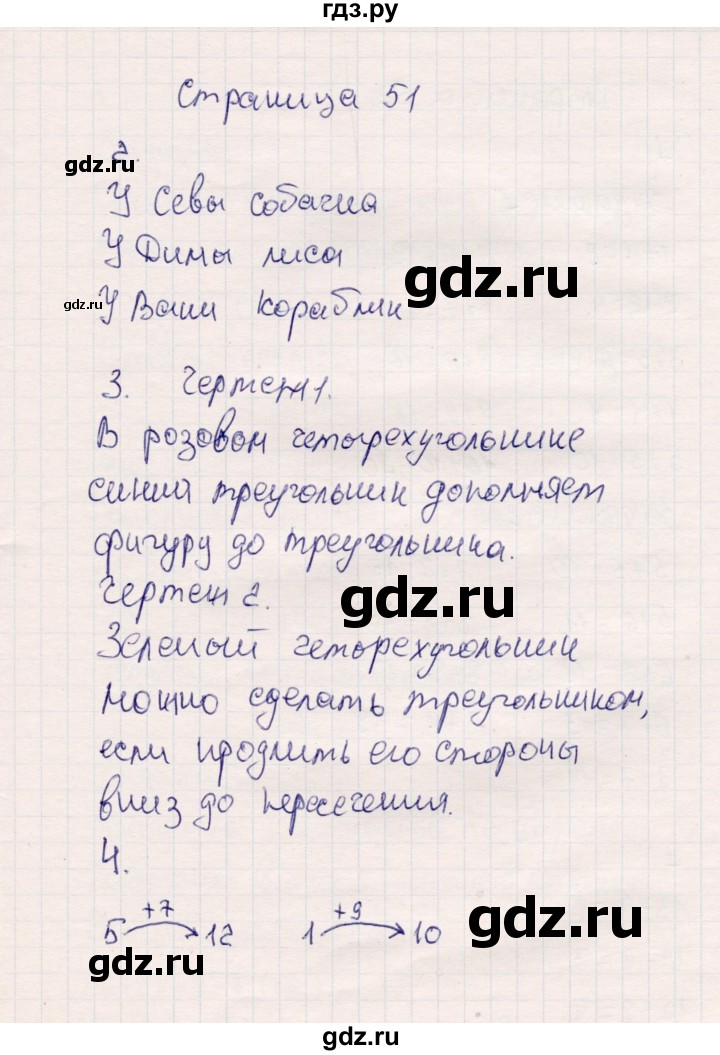 гдз.ру
Страница 51
2.
gdz.ru
У Севы собачка
У Димы лиса
gdz.ru
gdz.ru
У Вани кораблик
3. Чертеж 1.
В розовом четырехугольнике
синий треугольник дополняет
фигуру до треугольника.
gdz.ru
Чертеж 2.
Зеленый четырехугольник
можно сделать треугольником,
если продлить его стороны
вниз до пересечения.
4.
+7 +9
5 12 1 10
gdz.ru
gdz.ru
gdz.ru